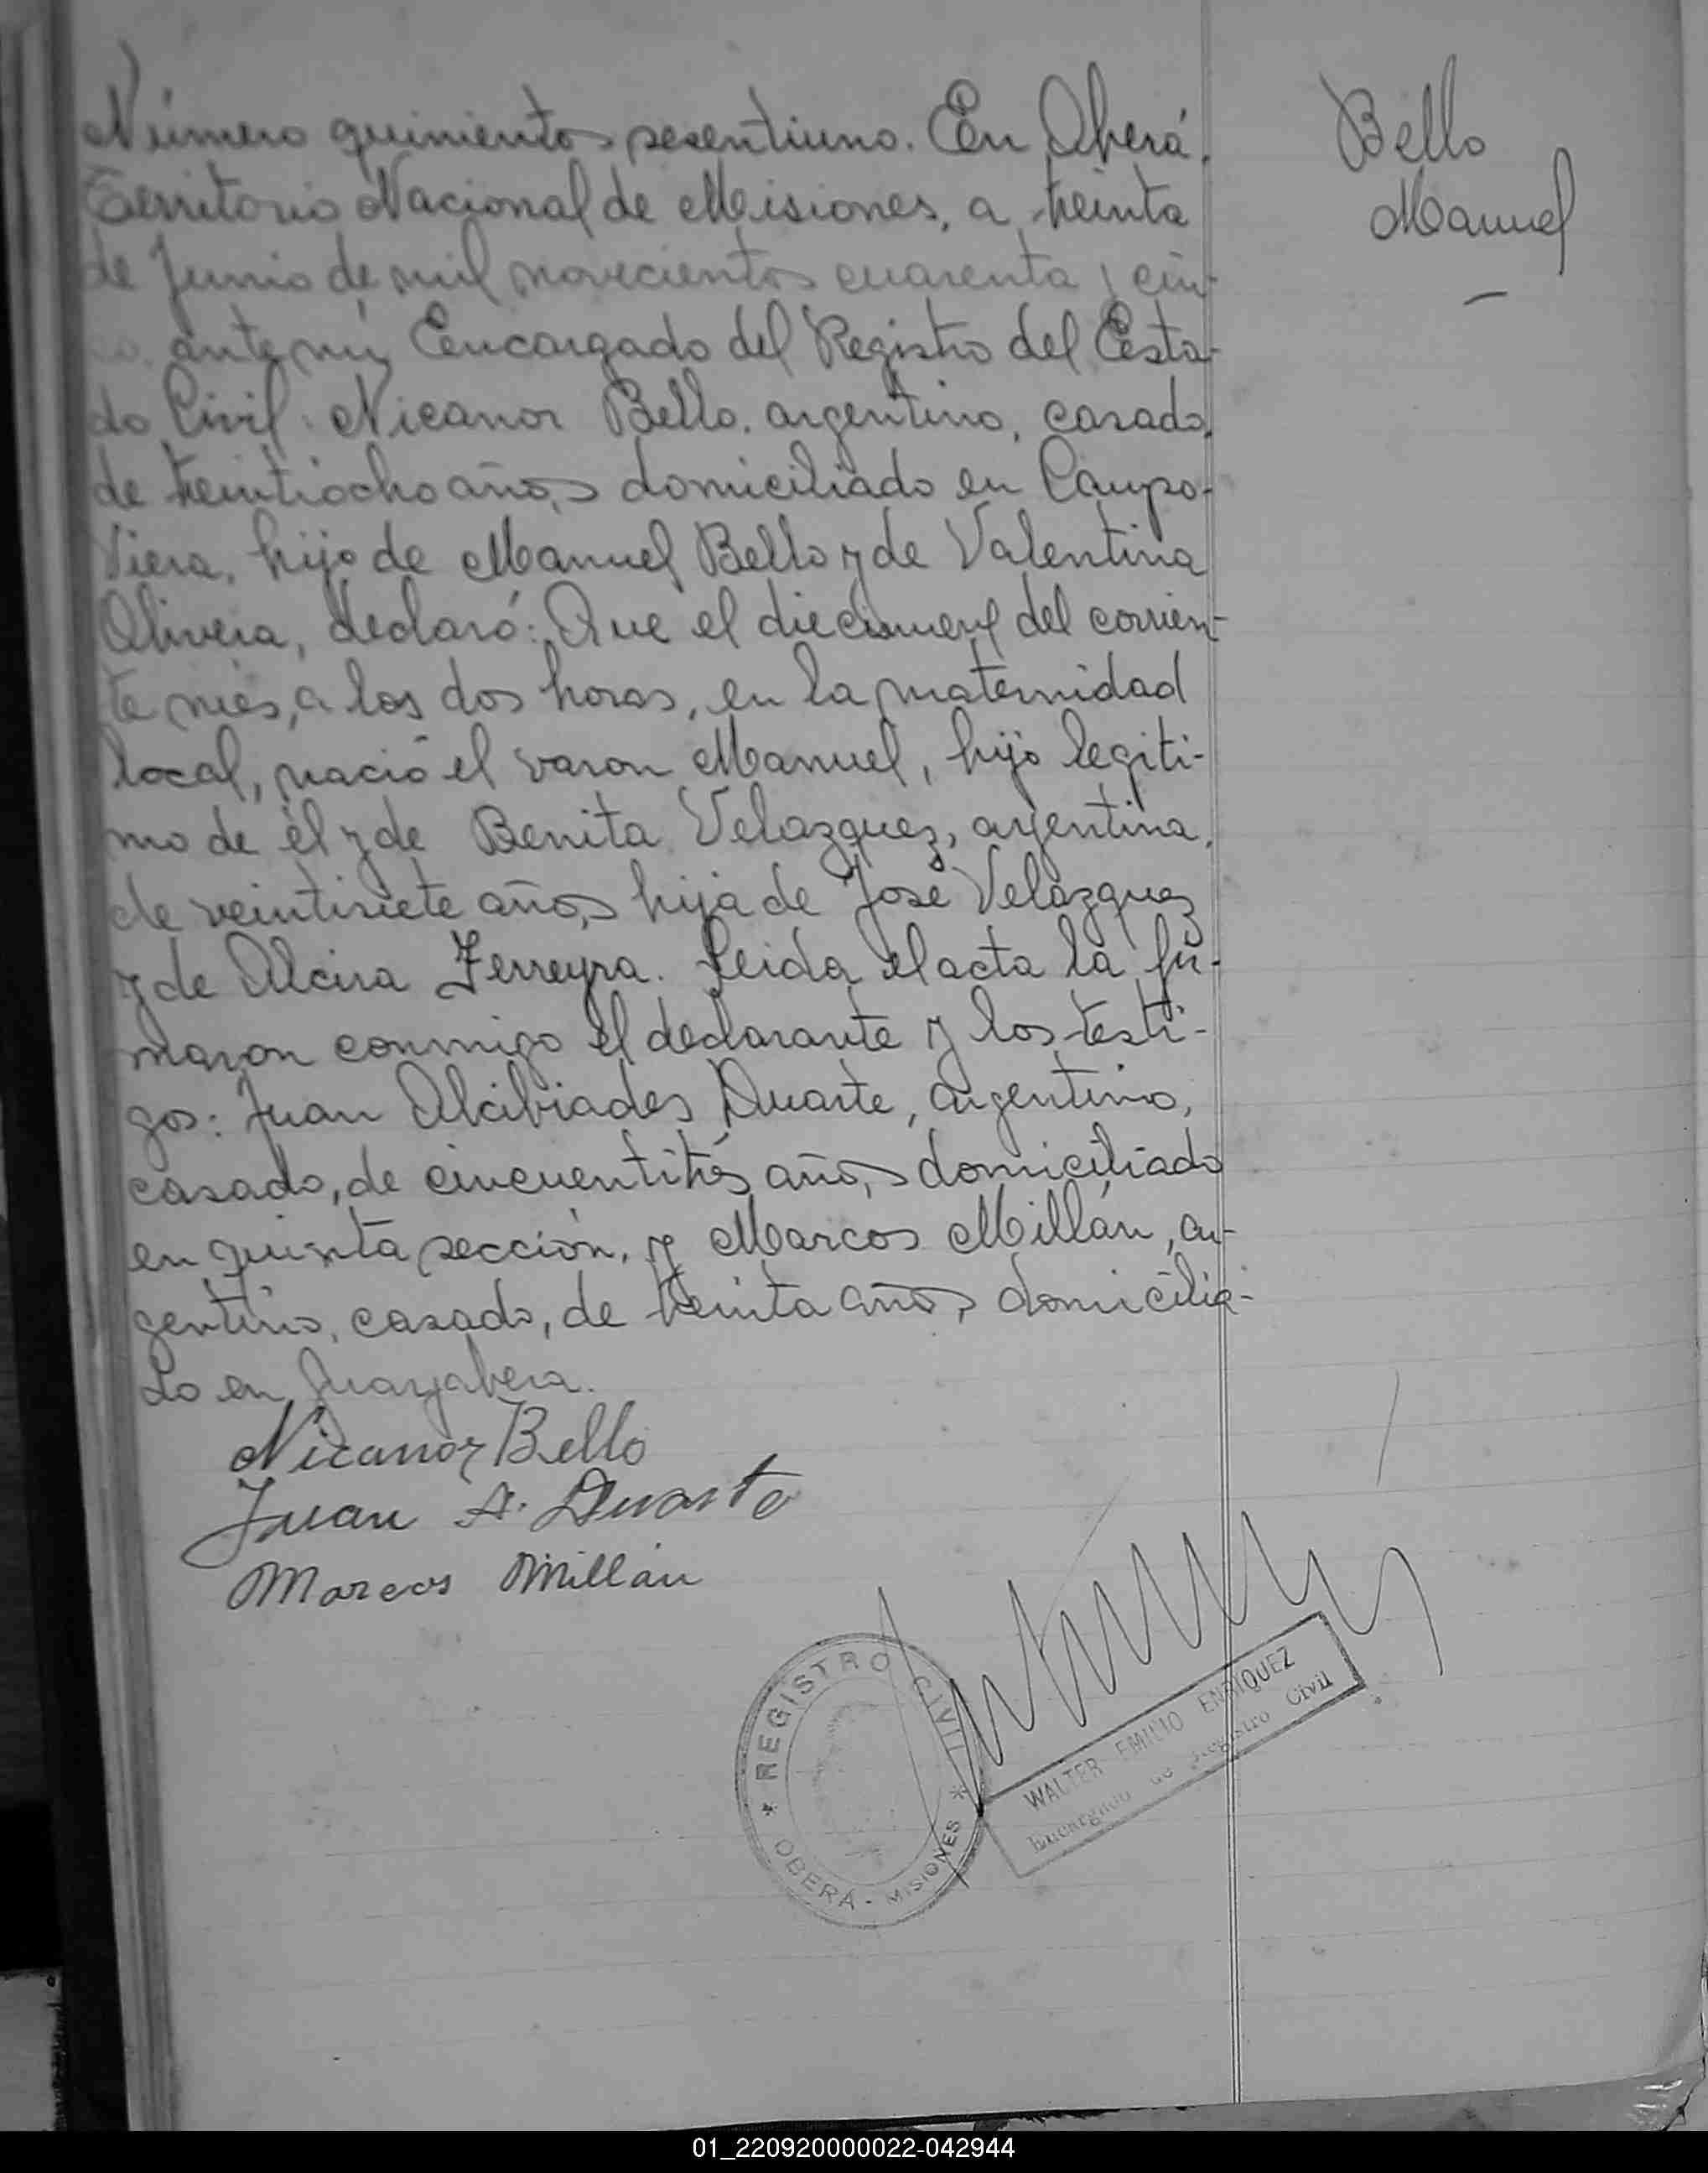 Número quinientos sesentiuno. En Oberá,
Territorio Nacional de Misiones, a treinta
de Junio de mil novecientos cuarenta y cin-
co, ante mí, Encargado del Registro del Esta-
do Civil: Nicanor Bello, argentino, casado,
de treintiocho años, domiciliado en Campo-
Viera, hijo de Manuel Bello y de Valentina
Olivera, declaró: Que el diecinueve del corrien-
te més, a las dos horas, en la maternidad
local, nació el varon Manuel, hijo legiti-
mo de él y de Benita Velazquez, argentina,
de veintisiete años, hija de José Velázquez
y de Alcira Ferreyra. Leida el acta la fir-
maron conmigo el declarante y los testi-
gos: Juan Alcibiades Duarte, argentino,
casado, de cincuentitrés años, domiciliado
en quinta sección, y Marcos Millán, ar-
gentino, casado, de treinta años, domicilia-
do en Guayabera.
Nicanor Bello
Juan A. Duarte
Marcos Millán
Bello
Manuel
REGISTRO CIVIL
OBERÁ - MISIONES
WALTER EMILIO ENRIQUEZ
Encargado de Registro Civil
01_220920000022-042944